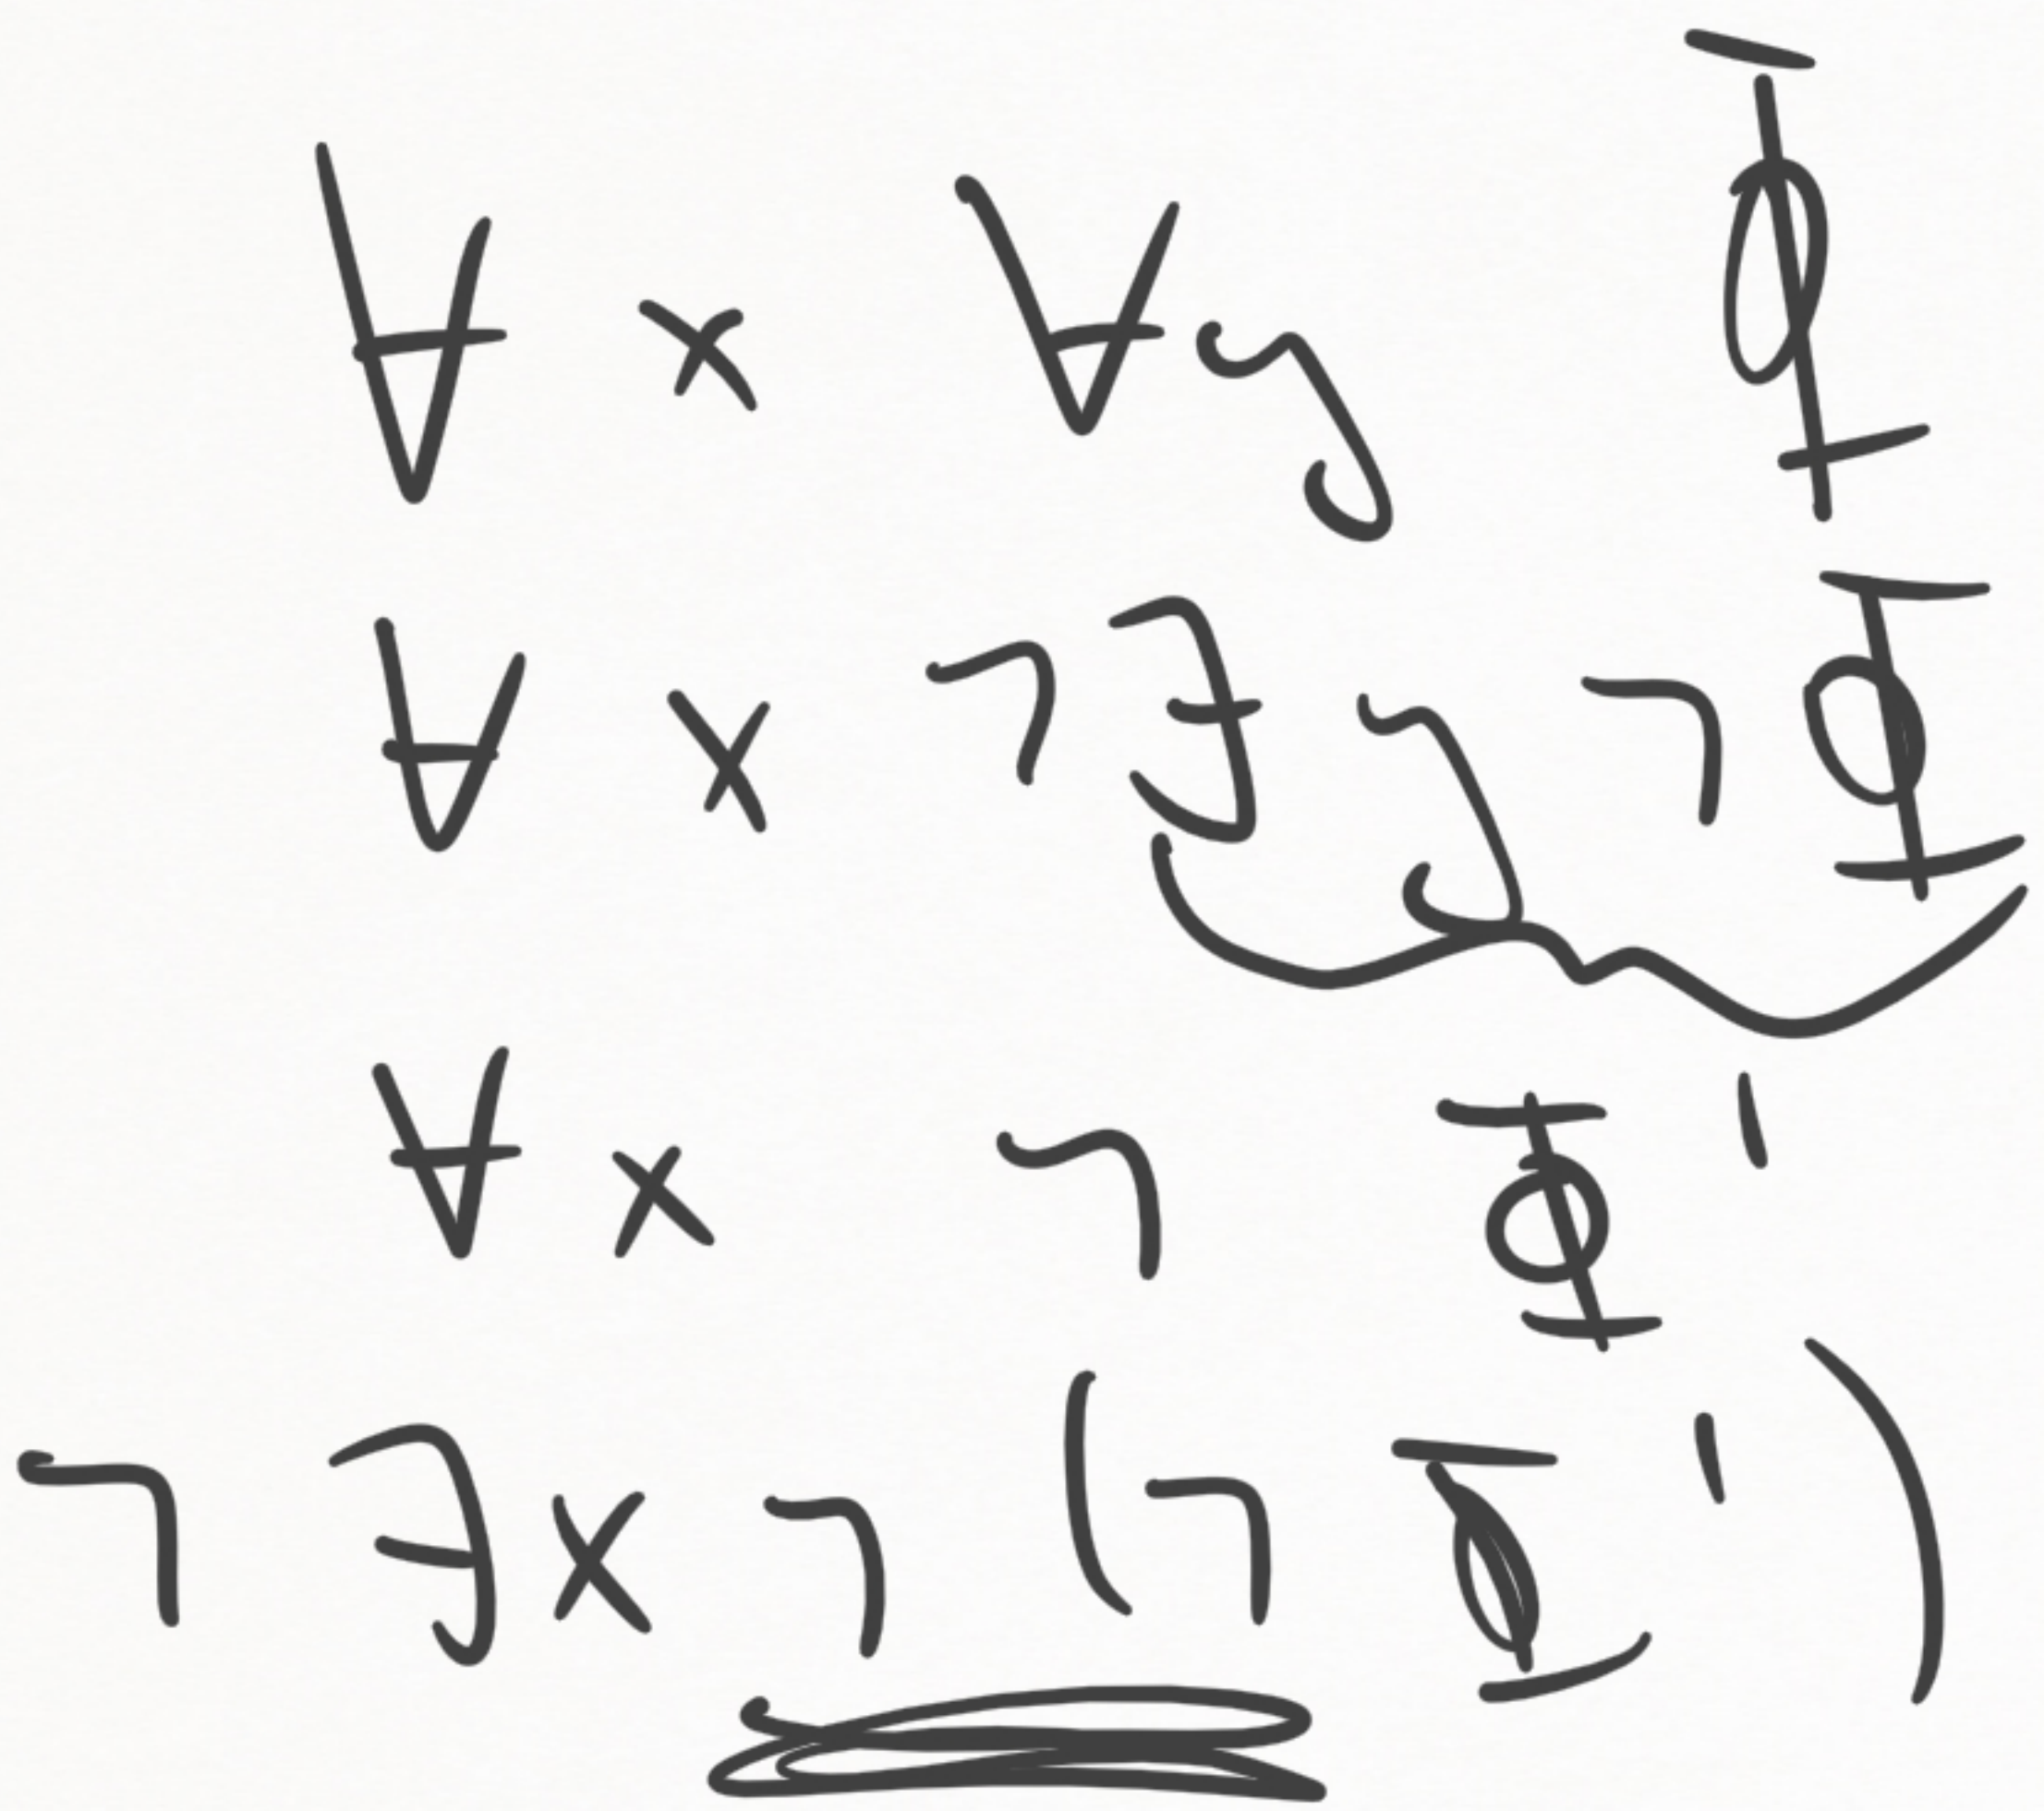 ∀ x ∀ y Φ
∀ x ¬ ∃ y ¬ Φ
∀ x ¬ Φ '
¬ ∃ x ¬ ( ¬ Φ ' )